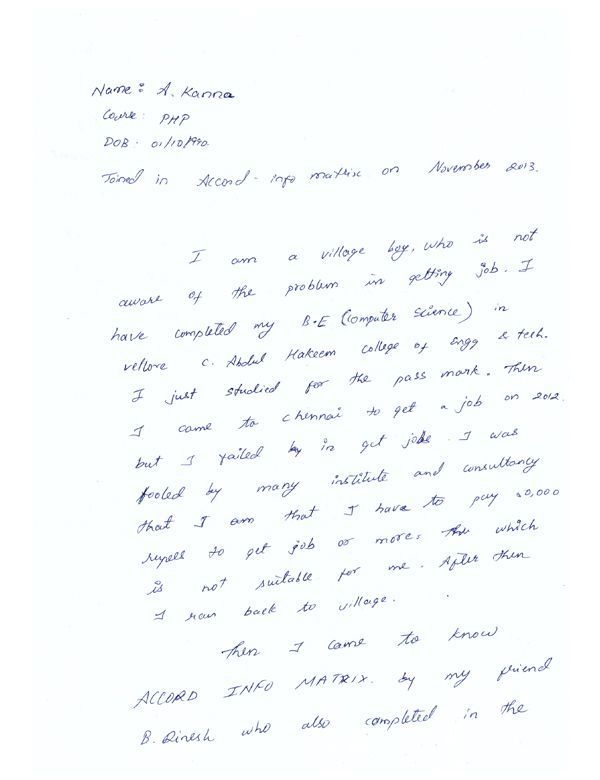 Name: A. Kanna
Course: PHP
DOB: 01/10/1990
Joined in Accord - info matrix on November 2013.
I am a village boy, who is not
aware of the problem in getting job. I
have completed my B.E (Computer Science) in
vellore C. Abdul Hakeem college of Engg & tech.
I just studied for the pass mark. Then
I came to chennai to get a job on 2012.
but I failed in get jobs. I was
fooled by many institute and consultancy
that I am that I have to pay 0,000
to get job or more. which
is not suitable for me. After then
I ran back to village.
Then I came to know
ACCORD INFO MATRIX. by my friend
B. Dinesh who also completed in the